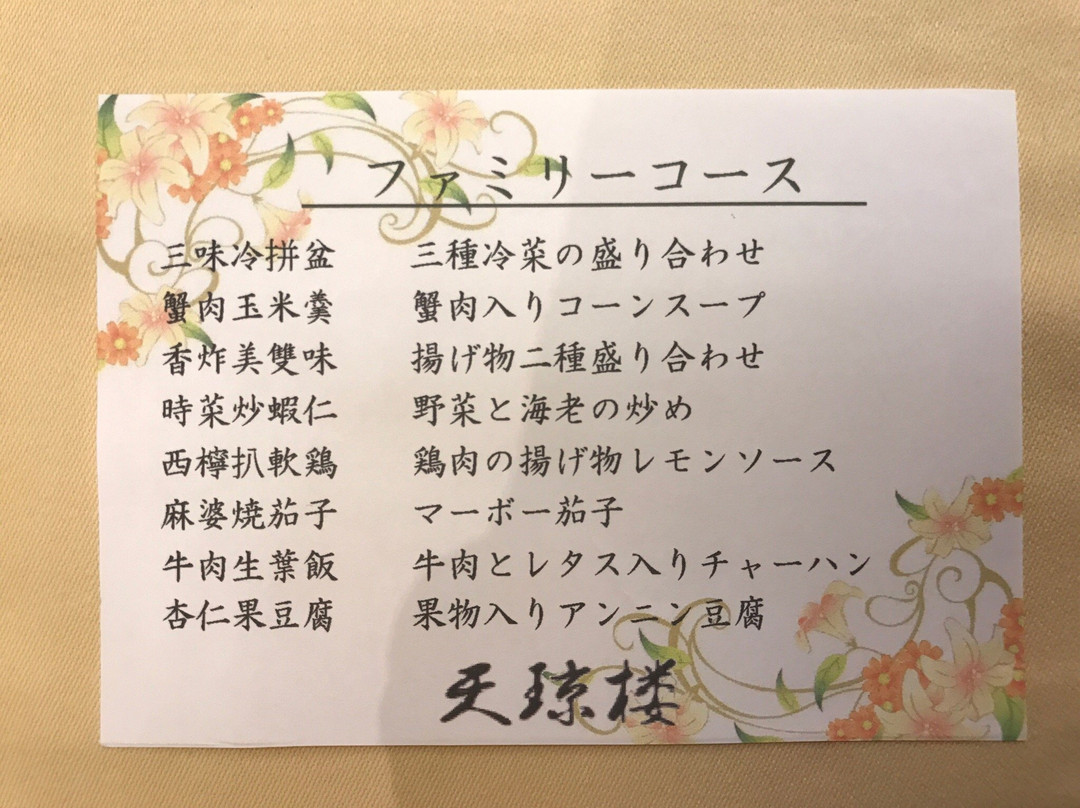 ファミリーコース
三味冷拼盆 三種冷菜の盛り合わせ
蟹肉玉米羹 蟹肉入りコーンスープ
香炸美雙味 揚げ物二種盛り合わせ
時菜炒蝦仁 野菜と海老の炒め
西檸扒軟鶏 鶏肉の揚げ物レモンソース
麻婆焼茄子 マーボー茄子
牛肉生葉飯 牛肉とレタス入りチャーハン
杏仁果豆腐 果物入りアンニン豆腐
天琼楼